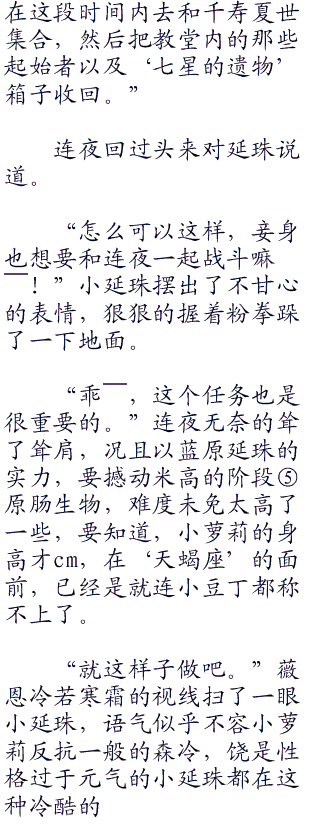 在这段时间内去和千寿夏世
集合，然后把教堂内的那些
起始者以及‘七星的遗物’
箱子收回。”
连夜回过头来对延珠说
道。
“怎么可以这样，妾身
也想要和连夜一起战斗嘛
￣！”小延珠摆出了不甘心
的表情，狠狠的握着粉拳跺
了一下地面。
“乖￣，这个任务也是
很重要的。”连夜无奈的耸
了耸肩，况且以蓝原延珠的
实力，要撼动米高的阶段⑤
原肠生物，难度未免太高了
一些，要知道，小萝莉的身
高才cm，在‘天蝎座’的面
前，已经是就连小豆丁都称
不上了。
“就这样子做吧。”薇
恩冷若寒霜的视线扫了一眼
小延珠，语气似乎不容小萝
莉反抗一般的森冷，饶是性
格过于元气的小延珠都在这
种冷酷的